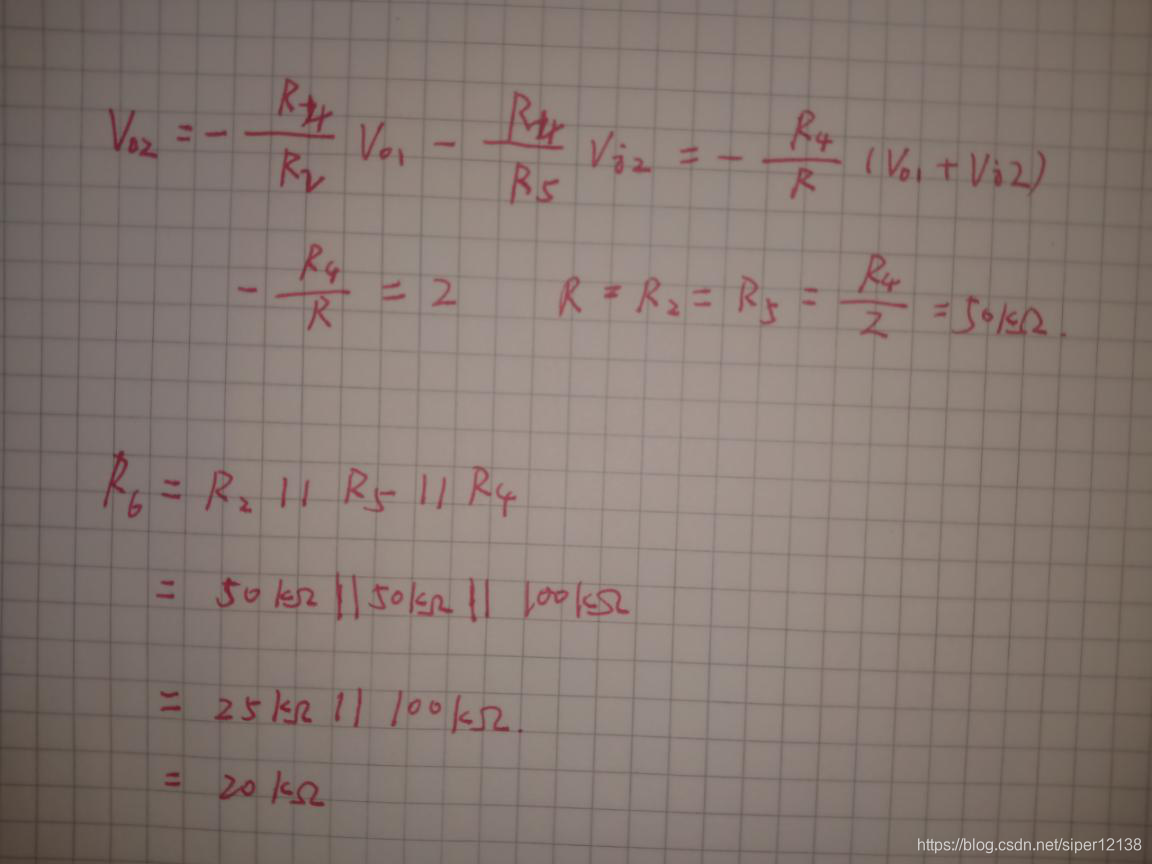 V₀₂ = - R₄/R₂ V₀₁ - R₄/R₅ Vᵢ₂ = - R₄/R (V₀₁ + Vᵢ₂)
- R₄/R = 2 R = R₂ = R₅ = R₄/2 = 50kΩ.
R₆ = R₂ || R₅ || R₄
= 50kΩ || 50kΩ || 100kΩ
= 25kΩ || 100kΩ.
= 20kΩ
https://blog.csdn.net/siper12138